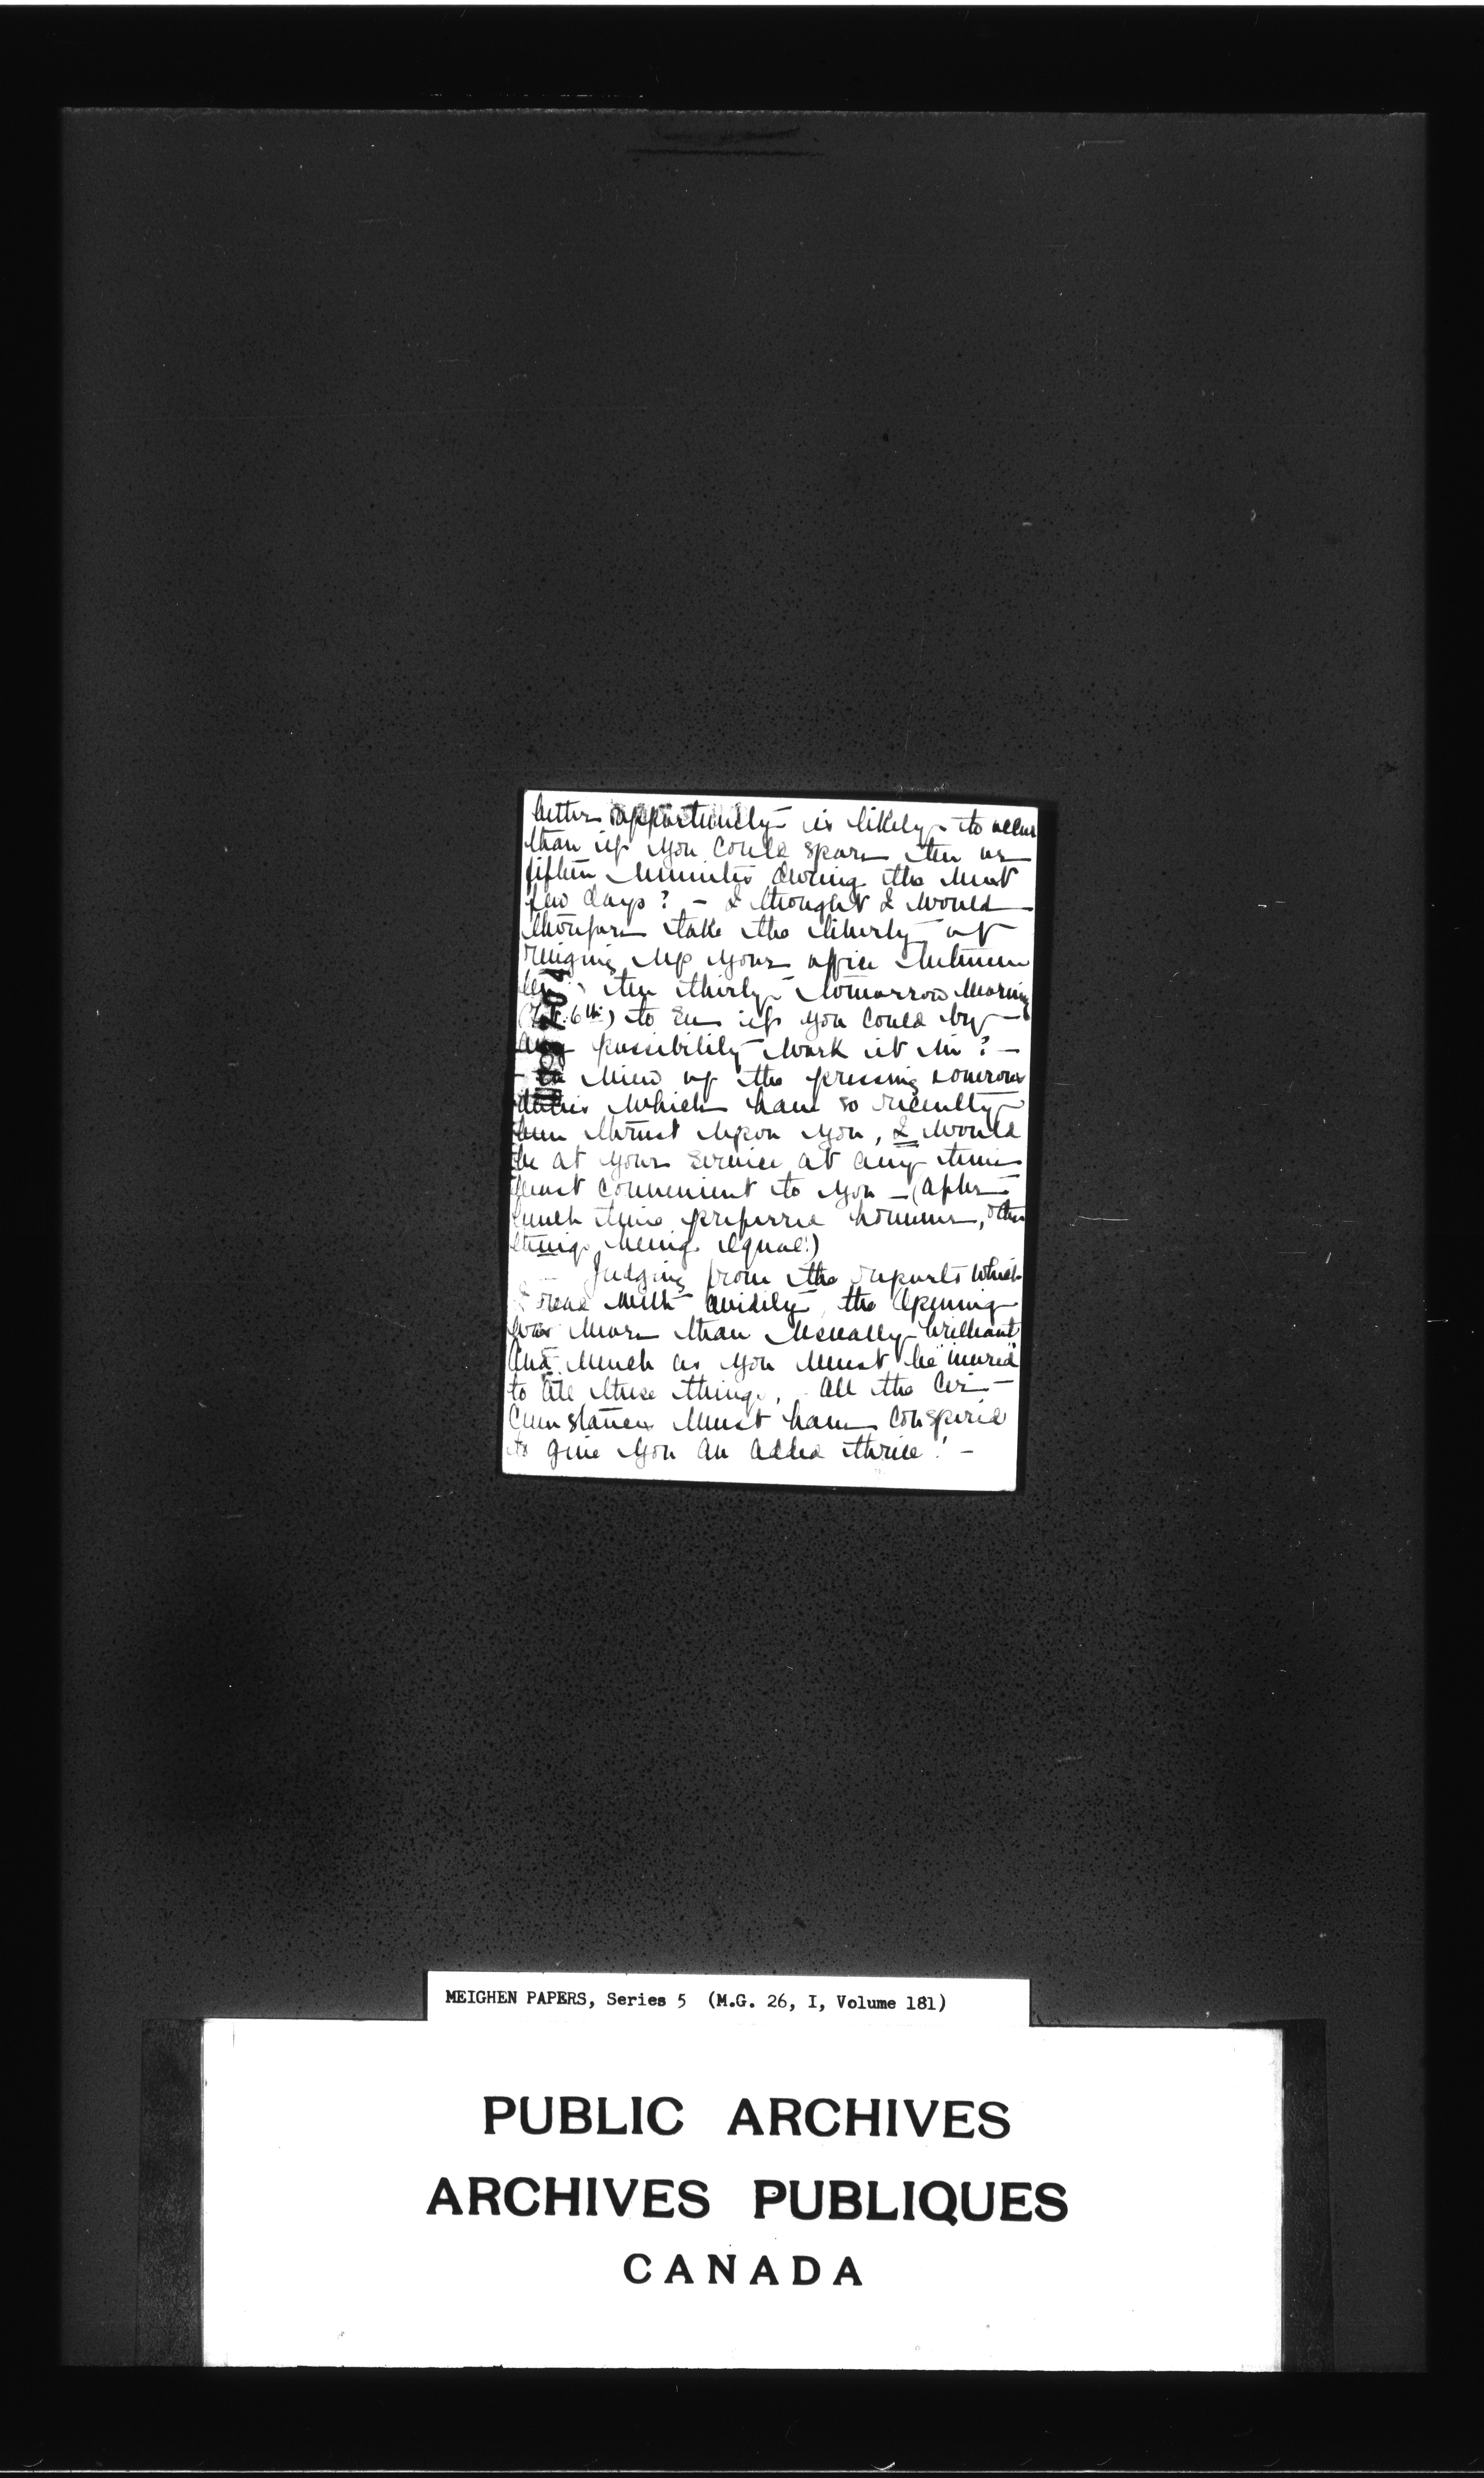 better opportunity is likely to occur
than if you could spare ten or
fifteen minutes during the next
few days? - I thought I would
therefore take the liberty of
ringing up your office between
ten & ten thirty - tomorrow morning
(Feb. 6th) to see if you could by
any possibility work it in? -
- In view of the pressing onerous
duties which have so recently
been thrust upon you, I would
be at your service at any time
most convenient to you - (after
lunch time preferred however, other
things being equal!)
Judging from the reports which
I read with avidity, the Opening
was more than usually brilliant
and much as you must be "inured"
to all these things, all the cir-
cumstances must have conspired
to give you an added thrill! -
MEIGHEN PAPERS, Series 5 (M.G. 26, I, Volume 181)
PUBLIC ARCHIVES
ARCHIVES PUBLIQUES
CANADA